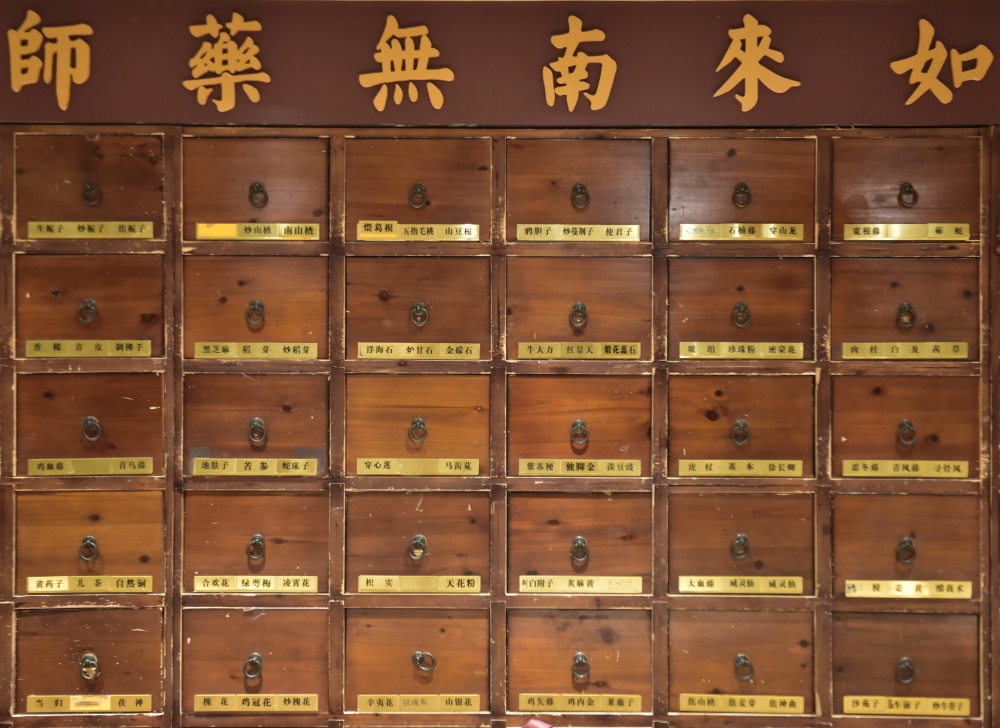 如來南無藥師
生栀子 炒栀子 焦栀子
炒山楂 南山楂
煨葛根 五指毛桃 山豆根
鸦胆子 炒蔓荆子 使君子
石楠藤 穿山龙
宽根藤 蕲蛇
香橼 青皮 制佛手
黑芝麻 稻芽 炒稻芽
浮海石 炉甘石 金礞石
牛大力 红景天 煅花蕊石
琥珀 珍珠粉 密蒙花
肉桂 白及 茜草
鸡血藤 首乌藤
地肤子 苦参 蛇床子
穿心莲 马齿苋
紫苏梗 独脚金 淡豆豉
虎杖 藁本 徐长卿
忍冬藤 青风藤 寻骨风
黄药子 儿茶 自然铜
合欢花 绿萼梅 凌霄花
枳实 天花粉
制白附子 炙麻黄
大血藤 威灵仙 威灵仙
三棱 姜黄 醋莪术
当归 茯神
槐花 鸡冠花 炒槐花
辛夷花 山银花
鸡矢藤 鸡内金 莱菔子
焦山楂 焦麦芽 焦神曲
沙苑子